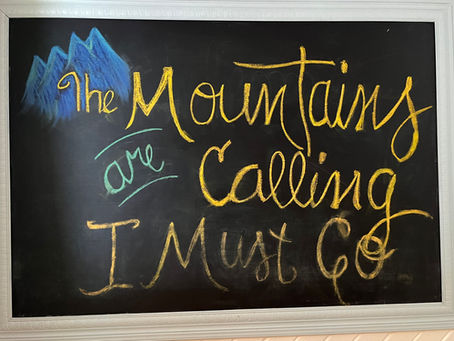 The Mountains
are Calling
I Must Go